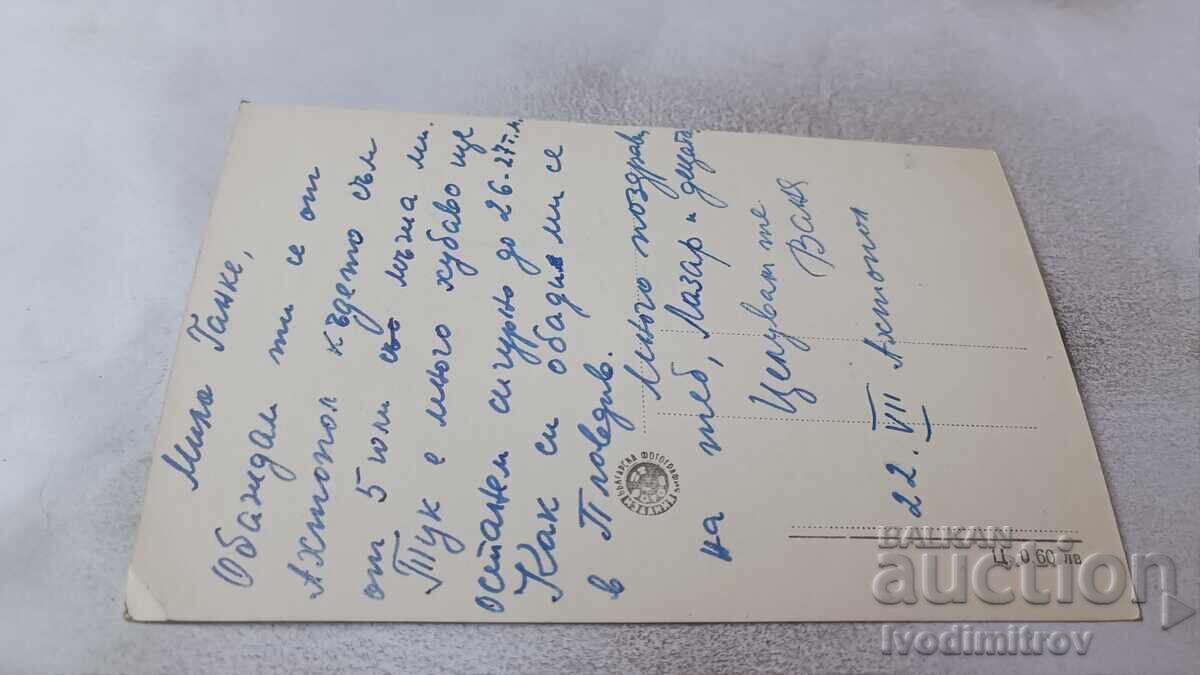 Мила Ганке,
Обаждам ти се от
Ахтопол където съм
от 5 юли със мъжа ми.
Тук е много хубаво ще
останем сигурно до 26-27 т.м.
Как си обади ми се
в Пловдив.
Много поздрави
на теб, Лазар и децата.
Целувам те
Ваня
22. VII Ахтопол
БЪЛГАРСКА ФОТОГРАФИЯ
Ц. 0.60 лв
BALKAN
auction
Ivodimitrov